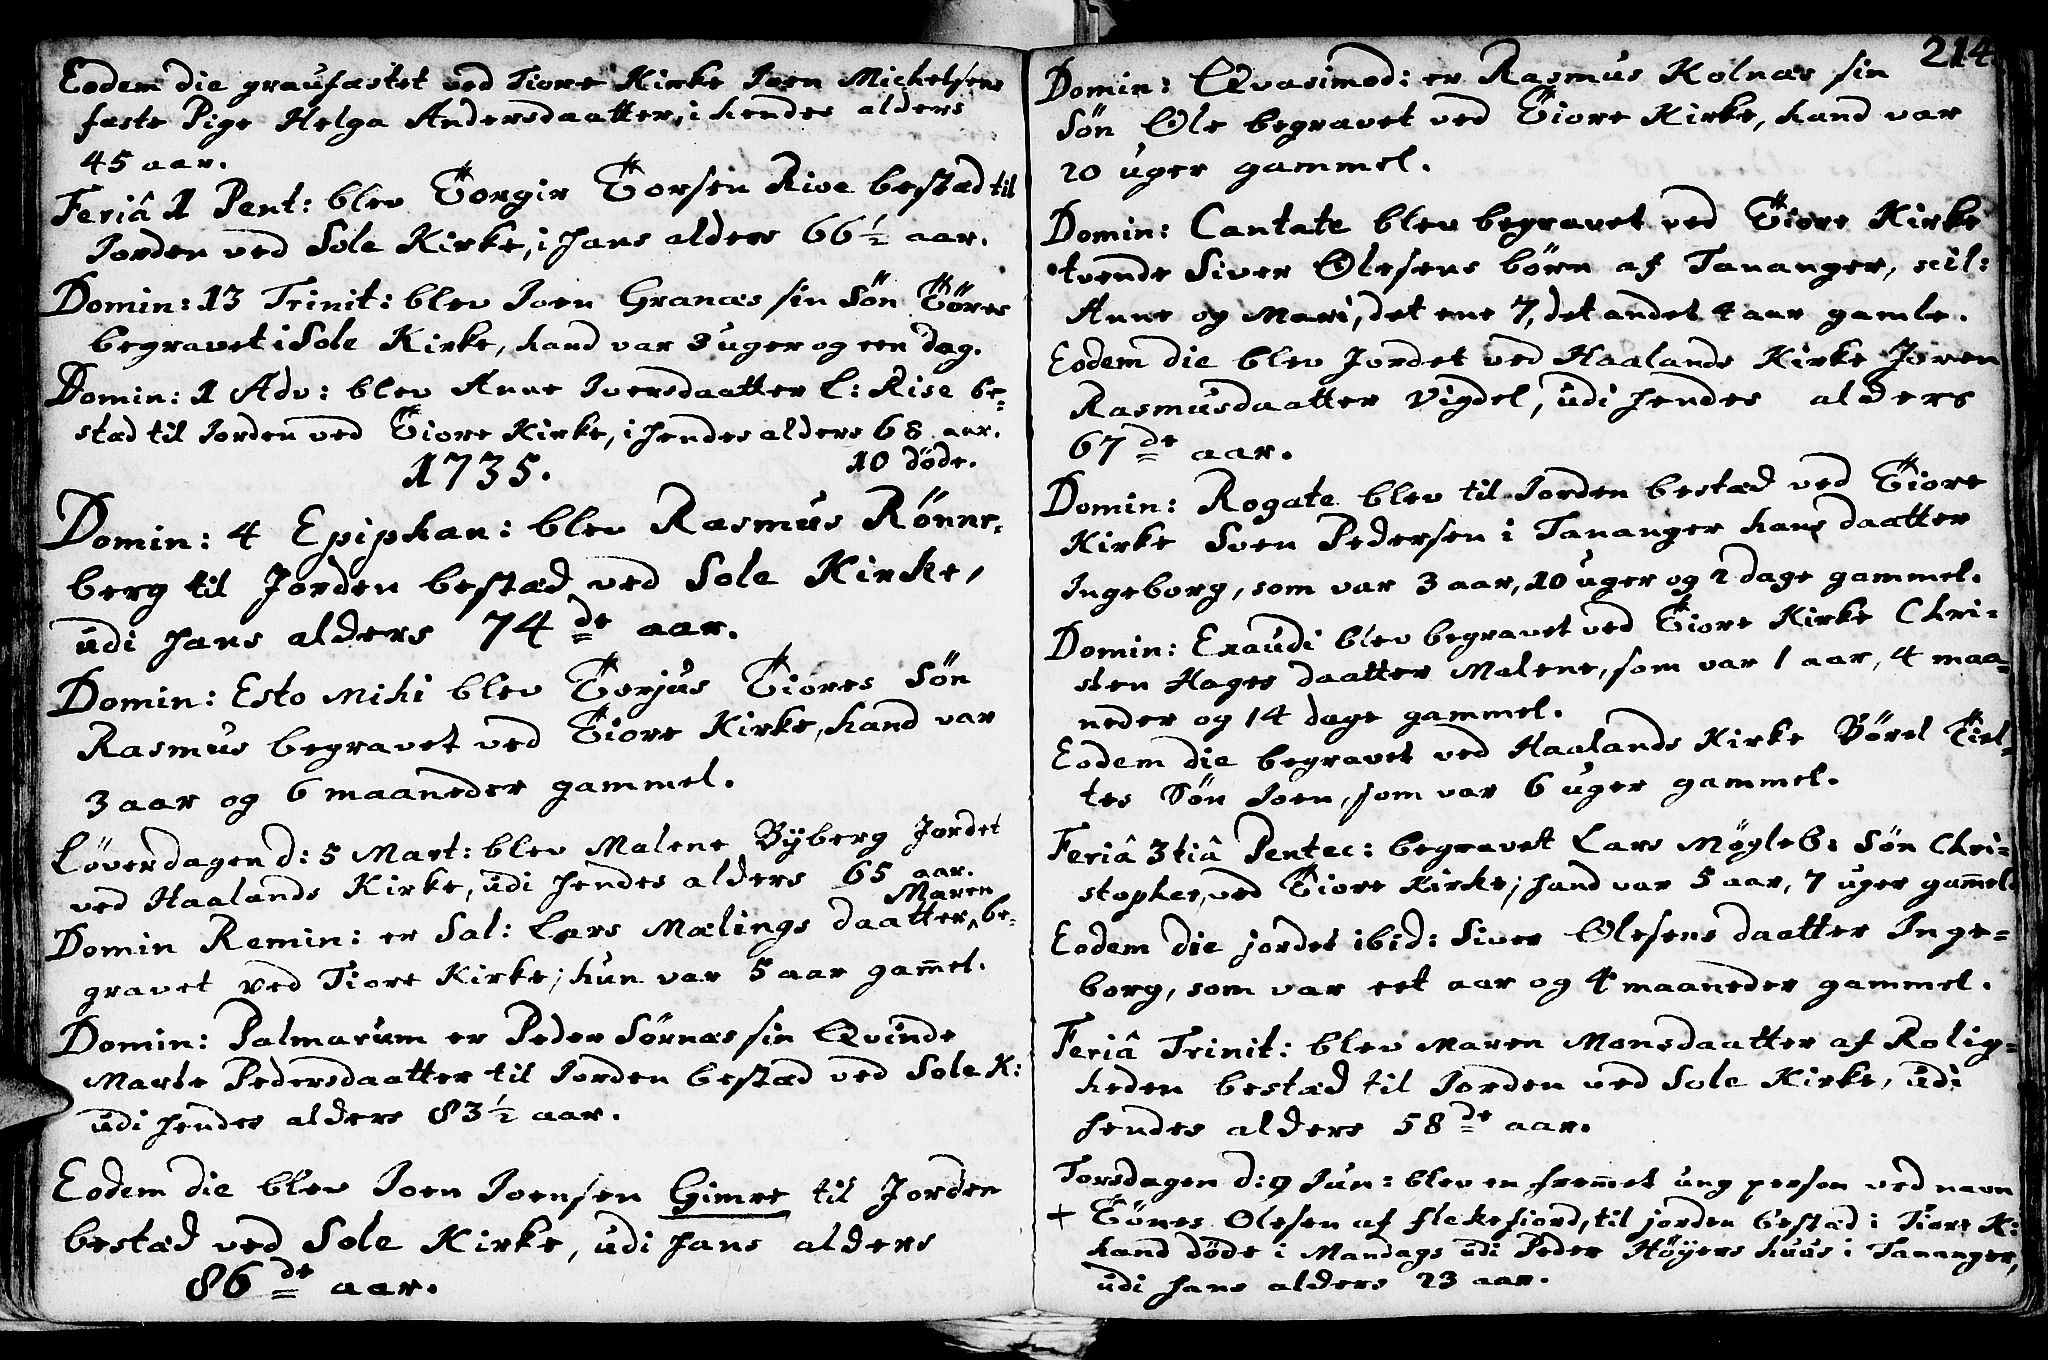 Eodem die graufæstet ved Tiore Kirke Joen Michelsens
fæste Pige Helga Andersdaatter, i hendes alders
45 aar.
Feriâ 1 Pent: blev Torgir Torsen Rive bestæd til
Jorden ved Sole Kirke, i hans alders 66½ aar.
Domin: 13 Trinit: blev Joen Granæs sin Sön Töres
begravet i Sole Kirke, hand var 3 uger og een dag.
Domin: 1 Adv: blev Anne Iversdaatter l: Risе be-
stæd til Jorden ved Tiore Kirke, i hendes alders 68 aar.
1735. 10 döde.
Domin: 4 Epiphan: blev Rasmus Rönne-
berg til Jorden bestæd ved Sole Kirke,
udi hans alders 74 de aar.
Domin: Esto Mihi blev Torjus Tiores Sön
Rasmus begravet ved Tiore Kirke, hand var
3 aar og 6 maaneder gammel.
Löverdagen d: 5 Mart: blev Malene Byberg Jordet
ved Haalands Kirke, udi hendes alders 65 aar.
Domin Remin: er Sal: Lars Mælings daatter, Maren be-
gravet ved Tiore Kirke; hun var 5 aar gam̃el.
Domin: Palmarum er Peder Sörnæs sin Qvinde
Marte Pedersdaatter til Jorden bestæd ved Sole K:
udi hendes alders 83½ aar.
Eodem die blev Joen Joensen Gimre til Jorden
bestæd ved Sole Kirke, udi hans alders
86 de aar.
214.
Domin: Qvasimod: er Rasmus Kolnæs sin
Sön Ole begravet ved Tiore Kirke, hand var
20 uger gammel.
Domin: Cantate blev begravet ved Tiore Kirke
tvende Siver Olesens börn af Tananger, scil:
Anne og Mari, det ene 7, det andet 4 aar gamle.
Eodem die blev Jordet ved Haalands Kirke Joren
Rasmusdaatter Vigdel, udi hendes alders
67 de aar.
Domin: Rogate blev til Jorden bestæd ved Tiore
Kirke Sven Pedersen i Tananger hans daatter
Ingeborg, som var 3 aar, 10 uger og 2 dage gammel.
Domin: Exaudi blev begravet ved Tiore Kirke Chri-
sten Hages daatter Malene, som var 1 aar, 4 maa-
neder og 14 dage gammel.
Eodem die begravet ved Haalands Kirke Börel Tiel-
tes Sön Joen, som var 6 uger gammel.
Feriâ 3tiâ Pentec: begravet Lars Mögleb: Sön Chri-
stopher, ved Tiore Kirke; hand var 5 aar, 7 uger gam̃el.
Eodem die jordet ibid: Siver Olesens daatter Inge-
borg, som var eet aar og 4 maaneder gammel.
Feriâ Trinit: blev Maren Monsdaatter af Rolig-
heden bestæd til Jorden ved Sole Kirke, udi
hendes alders 58 de aar.
Torsdagen d: 9 Jun: blev en frem̃et ung person ved navn
+ Tönes Olesen af Flekefiord, til jorden bestæd i Tiore K:
hand döde i Mandags udi Peder Höyers huus i Tananger,
udi hans alders 23 aar.